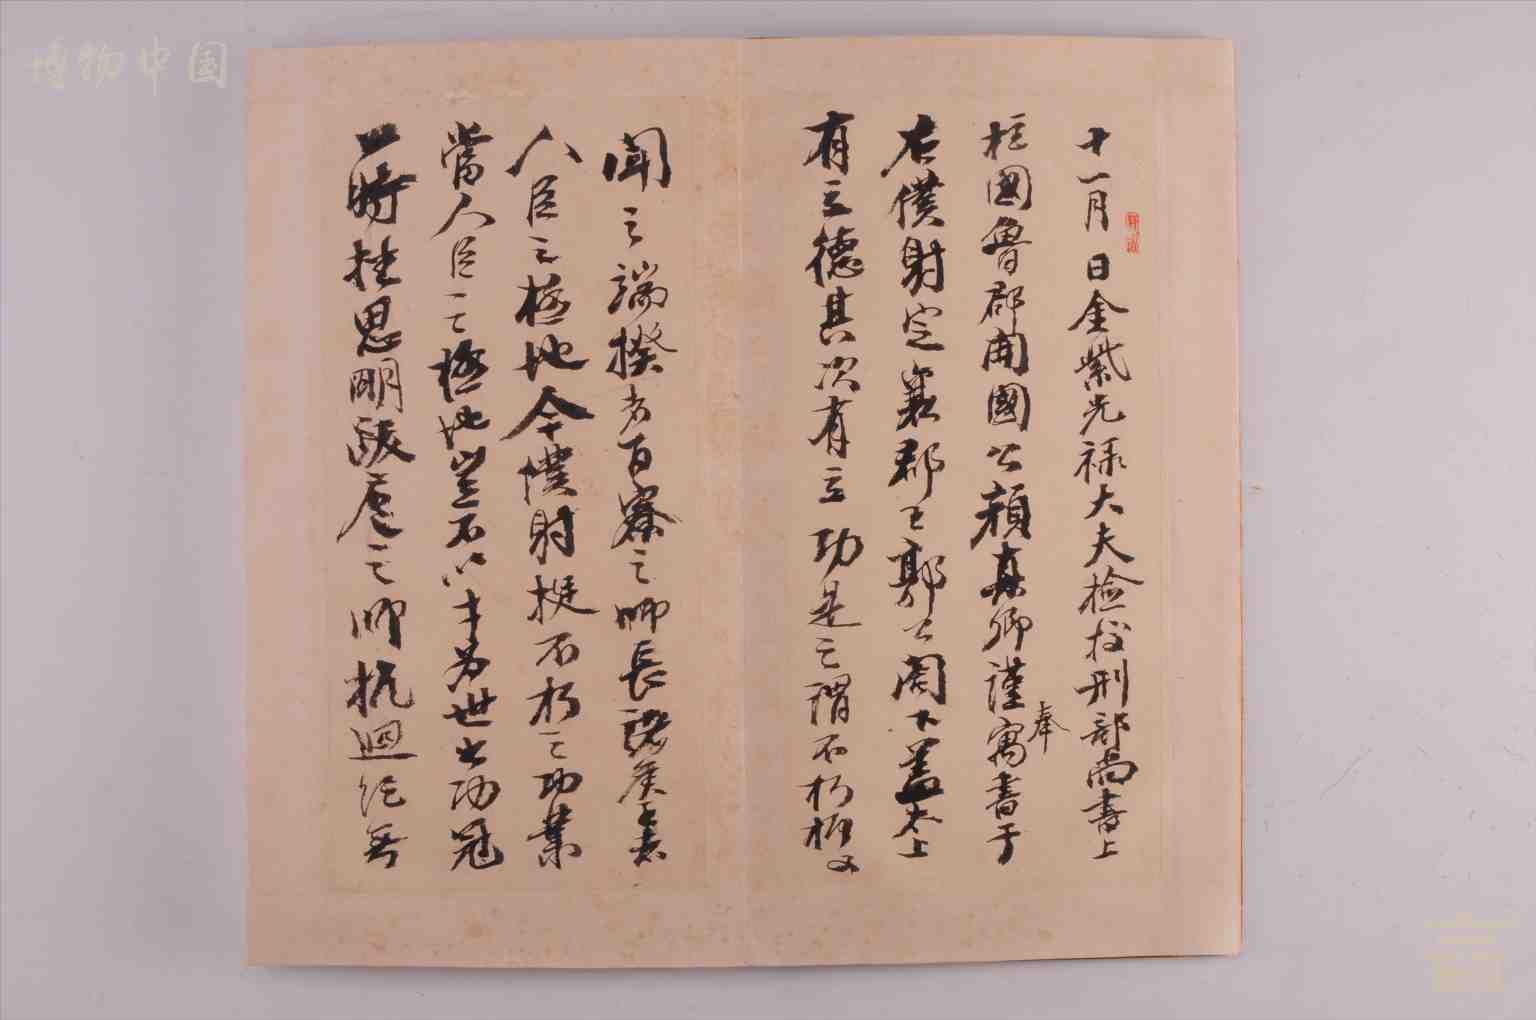 十一月 日金紫光禄大夫檢校刑部尚書上
柱國魯郡開國公顏真卿謹寓書于
奉
右僕射定襄郡王郭公閣下蓋太上
有立德其次有立功是之謂不朽抑又
聞之端揆者百寮之師長諸侯王者
人臣之極地今僕射挺不朽之功業
當人臣之極地豈不以才為世出功冠
一時挫思明跋扈之師抗迴紇無
博物中国